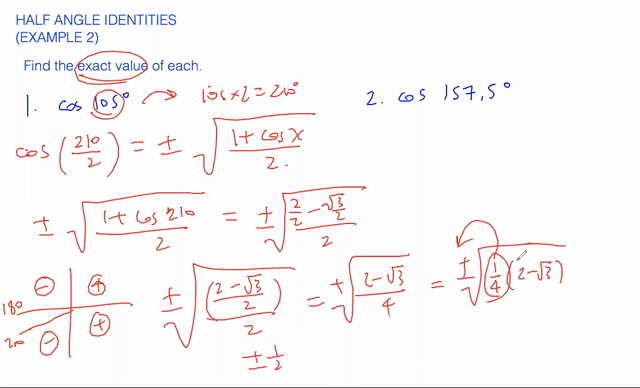 HALF ANGLE IDENTITIES
(EXAMPLE 2)
Find the exact value of each.
1. cos 105° → 105×2=210°
2. cos 157,5°
cos (210/2) = ± √((1+cos x)/2)
± √((1+cos 210)/2) = ± √((2/2 − √3/2)/2)
± √(((2−√3)/2)/2) = ± √((2−√3)/4) = ± √(1/4 (2−√3))
− +
180
210
− +
± 1/2